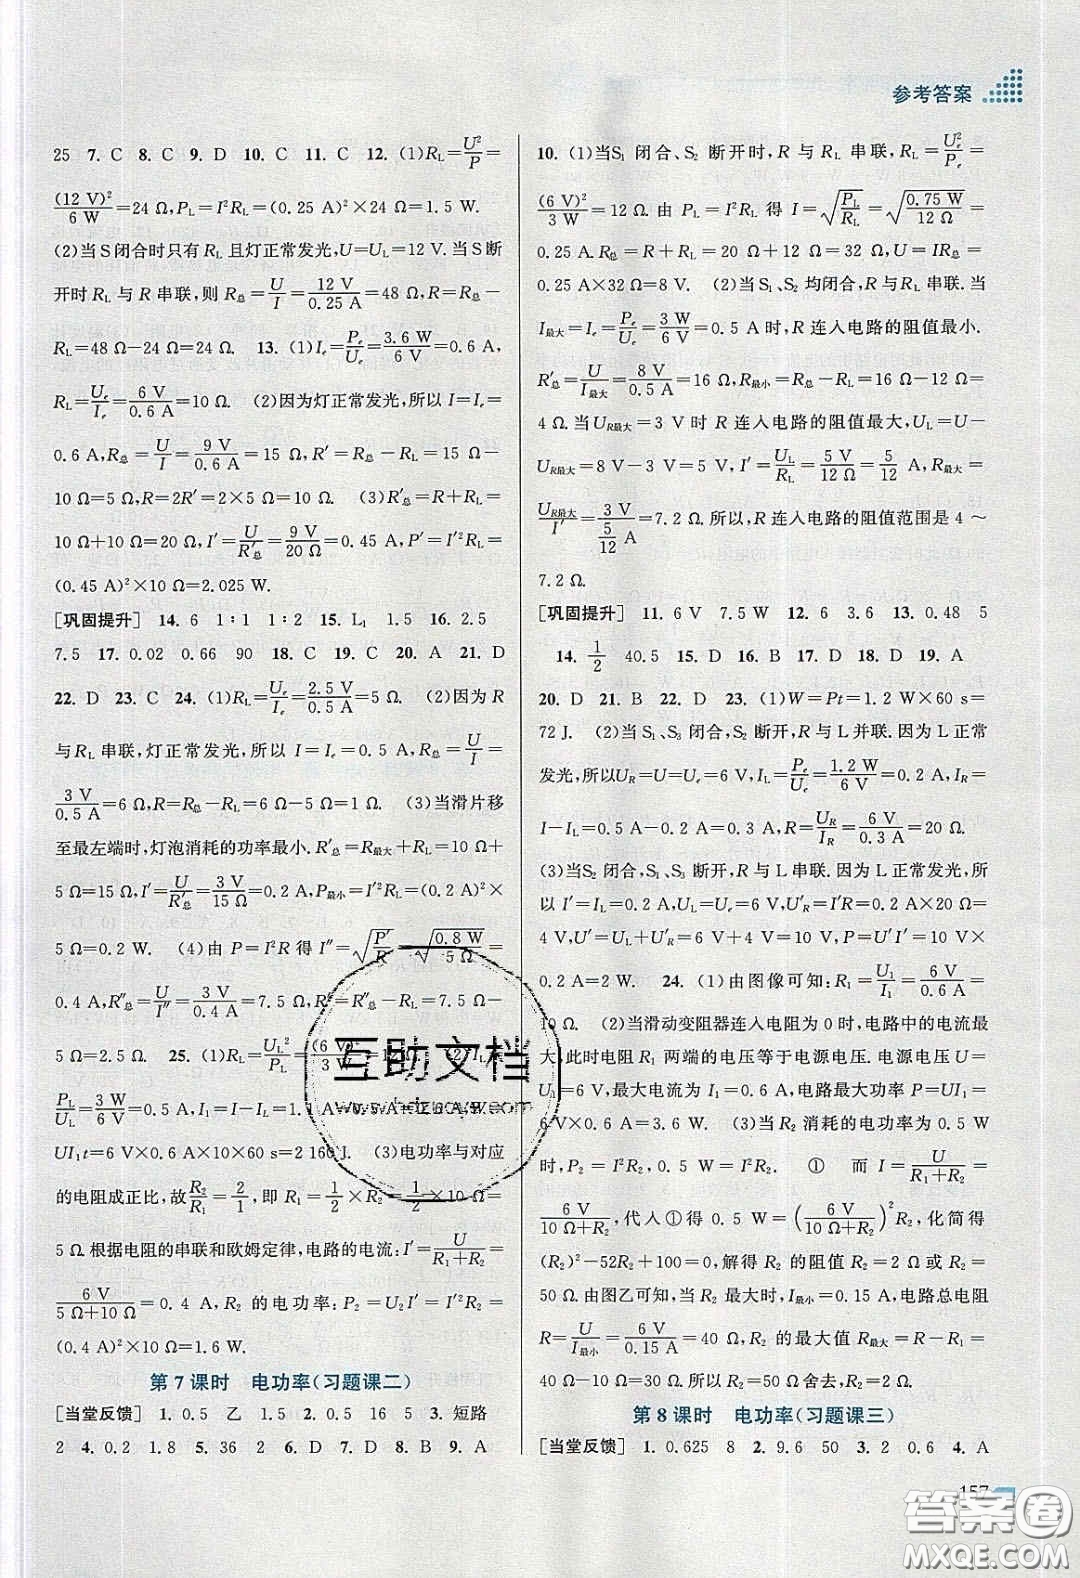 参考答案
25 7. C 8. C 9. D 10. C 11. C 12. (1)R_L=U²/P=
(12 V)²/6 W=24 Ω,P_L=I²R_L=(0.25 A)²×24 Ω=1.5 W.
(2)当S闭合时只有R_L且灯正常发光,U=U_L=12 V.当S断
开时R_L与R串联,则R总=U/I=12 V/0.25 A=48 Ω,R=R总-
R_L=48 Ω-24 Ω=24 Ω. 13. (1)I_e=P_e/U_e=3.6 W/6 V=0.6 A,
R_L=U_e/I_e=6 V/0.6 A=10 Ω. (2)因为灯正常发光,所以I=I_e=
0.6 A,R总=U/I=9 V/0.6 A=15 Ω,R'=R总-R_L=15 Ω-
10 Ω=5 Ω,R=2R'=2×5 Ω=10 Ω. (3)R'总=R+R_L=
10 Ω+10 Ω=20 Ω,I'=U/R'总=9 V/20 Ω=0.45 A,P_L=I'²R_L=
(0.45 A)²×10 Ω=2.025 W.
[巩固提升] 14. 6 1∶1 1∶2 15. L₁ 1.5 16. 2.5
7.5 17. 0.02 0.66 90 18. C 19. C 20. A 21. D
22. D 23. C 24. (1)R_L=U_e/I_e=2.5 V/0.5 A=5 Ω. (2)因为R
与R_L串联,灯正常发光,所以I=I_e=0.5 A,R总=U/I=
3 V/0.5 A=6 Ω,R=R总-R_L=6 Ω-5 Ω=1 Ω. (3)当滑片移
至最左端时,灯泡消耗的功率最小.R'总=R最大+R_L=10 Ω+
5 Ω=15 Ω,I'=U/R'总=3 V/15 Ω=0.2 A,P最小=I'²R_L=(0.2 A)²×
5 Ω=0.2 W. (4)由P=I²R得I″=√(P'/R)=√(0.8 W/5 Ω)=
0.4 A,R″总=U/I″=3 V/0.4 A=7.5 Ω,R″=R″总-R_L=7.5 Ω-
5 Ω=2.5 Ω. 25. (1)R_L=U_L²/P_L=(6 V)²/3 W
P_L/U_L=3 W/6 V=0.5 A,I₁=I-I_L=1.1 A-0.5 A=0.6 A,W=
UI₁t=6 V×0.6 A×10×60 s=2 160 J. (3)电功率与对应
的电阻成正比,故R₂/R₁=2/1,即R₁=1/2×R₂=1/2×10 Ω=
5 Ω.根据电阻的串联和欧姆定律,电路的电流:I'=U/(R₁+R₂)=
6 V/(5 Ω+10 Ω)=0.4 A,R₂的电功率:P₂=U₂I'=I'²R₂=
(0.4 A)²×10 Ω=1.6 W.
第7课时 电功率(习题课二)
[当堂反馈] 1. 0.5 乙 1.5 2. 0.5 16 5 3. 短路
2 4. 0.2 1.8 5. 36 2 6. D 7. D 8. B 9. A
10. (1)当S₁闭合、S₂断开时,R与R_L串联,R_L=U_e²/P_e=
(6 V)²/3 W=12 Ω.由P_L=I²R_L得I=√(P_L/R_L)=√(0.75 W/12 Ω)=
0.25 A.R总=R+R_L=20 Ω+12 Ω=32 Ω,U=IR总=
0.25 A×32 Ω=8 V. (2)当S₁、S₂均闭合时,R与R_L串联.当
I最大=I_e=P_e/U_e=3 W/6 V=0.5 A时,R连入电路的阻值最小.
R'总=U/I最大=8 V/0.5 A=16 Ω,R最小=R总-R_L=16 Ω-12 Ω=
4 Ω.当U_R最大=3 V时R连入电路的阻值最大,U_L=U-
U_R最大=8 V-3 V=5 V,I'=U_L/R_L=5 V/12 Ω=5/12 A,R最大=
U_R最大/I'=3 V/(5/12 A)=7.2 Ω.所以,R连入电路的阻值范围是4～
7.2 Ω.
[巩固提升] 11. 6 V 7.5 W 12. 6 3.6 13. 0.48 5
14. 1/2 40.5 15. D 16. B 17. D 18. D 19. A
20. D 21. B 22. D 23. (1)W=Pt=1.2 W×60 s=
72 J. (2)当S₁、S₃闭合,S₂断开,R与L并联.因为L正常
发光,所以U_R=U=U_e=6 V,I_L=P_e/U_e=1.2 W/6 V=0.2 A,I_R=
I-I_L=0.5 A-0.2 A=0.3 A,R=U_R/I_R=6 V/0.3 A=20 Ω.
(3)当S₂闭合,S₁、S₃断开,R与L串联.因为L正常发光,所
以I'=I_L=0.2 A,U_L=U_e=6 V,U'_R=I'R=0.2 A×20 Ω=
4 V,U'=U_L+U'_R=6 V+4 V=10 V,P=U'I'=10 V×
0.2 A=2 W. 24. (1)由图像可知:R₁=U₁/I₁=6 V/0.6 A=
10 Ω. (2)当滑动变阻器连入电阻为0时,电路中的电流最
大,此时电阻R₁两端的电压等于电源电压.电源电压U=
U₁=6 V,最大电流为I₁=0.6 A,电路最大功率P=UI₁=
6 V×0.6 A=3.6 W. (3)当R₂消耗的电功率为0.5 W
时,P₂=I²R₂,即0.5 W=I²R₂. ① 而I=U/(R₁+R₂)=
6 V/(10 Ω+R₂),代人①得0.5 W=(6 V/(10 Ω+R₂))²R₂,化简得
(R₂)²-52R₂+100=0,解得R₂的阻值R₂=2 Ω或R₂=
50 Ω.由图乙可知,当R₂最大时,I最小=0.15 A,电路总电阻
R=U/I最小=6 V/0.15 A=40 Ω,R₂的最大值R最大=R-R₁=
40 Ω-10 Ω=30 Ω.所以R₂=50 Ω舍去,R₂=2 Ω.
第8课时 电功率(习题课三)
[当堂反馈] 1. 0.625 8 2. 9.6 50 3. 2 0.6 4. A
157
互助文档
答案圈
MXQE.COM